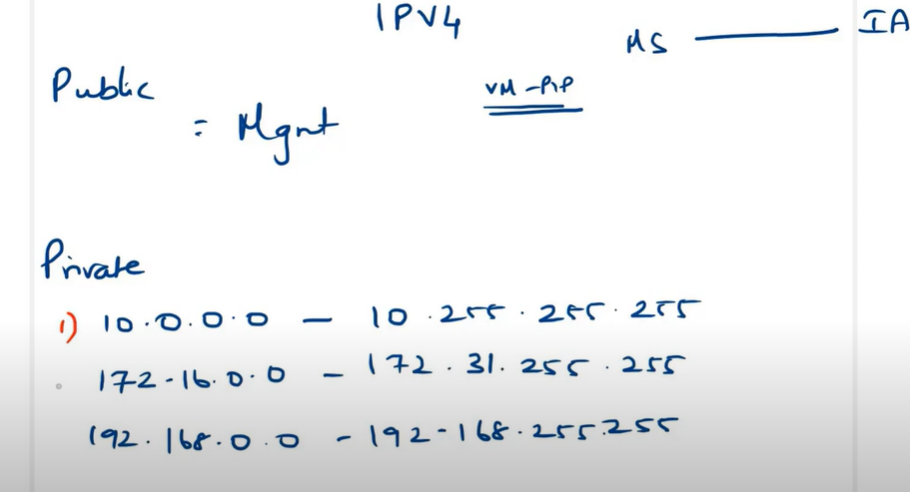 IPV4
MS — IA
Public
VM-PIP
= Mgnt
Private
1) 10.0.0.0 — 10.255.255.255
172-16.0.0 - 172.31.255.255
192.168.0.0 - 192-168.255.255